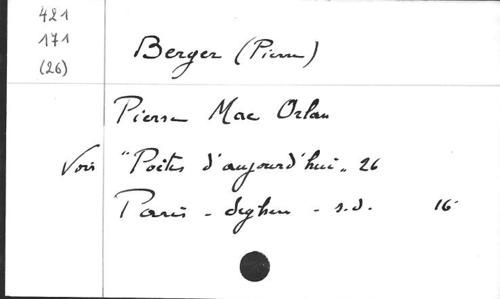 421
171
(26)
Berger (Pierre)
Pierre Mac Orlan
Voir "Poètes d'aujourd'hui" 26
Paris - Seghers - s.d. 16°